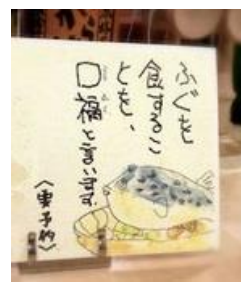 ふぐを
食するこ
とを、
口福と言います。
〈要予約〉